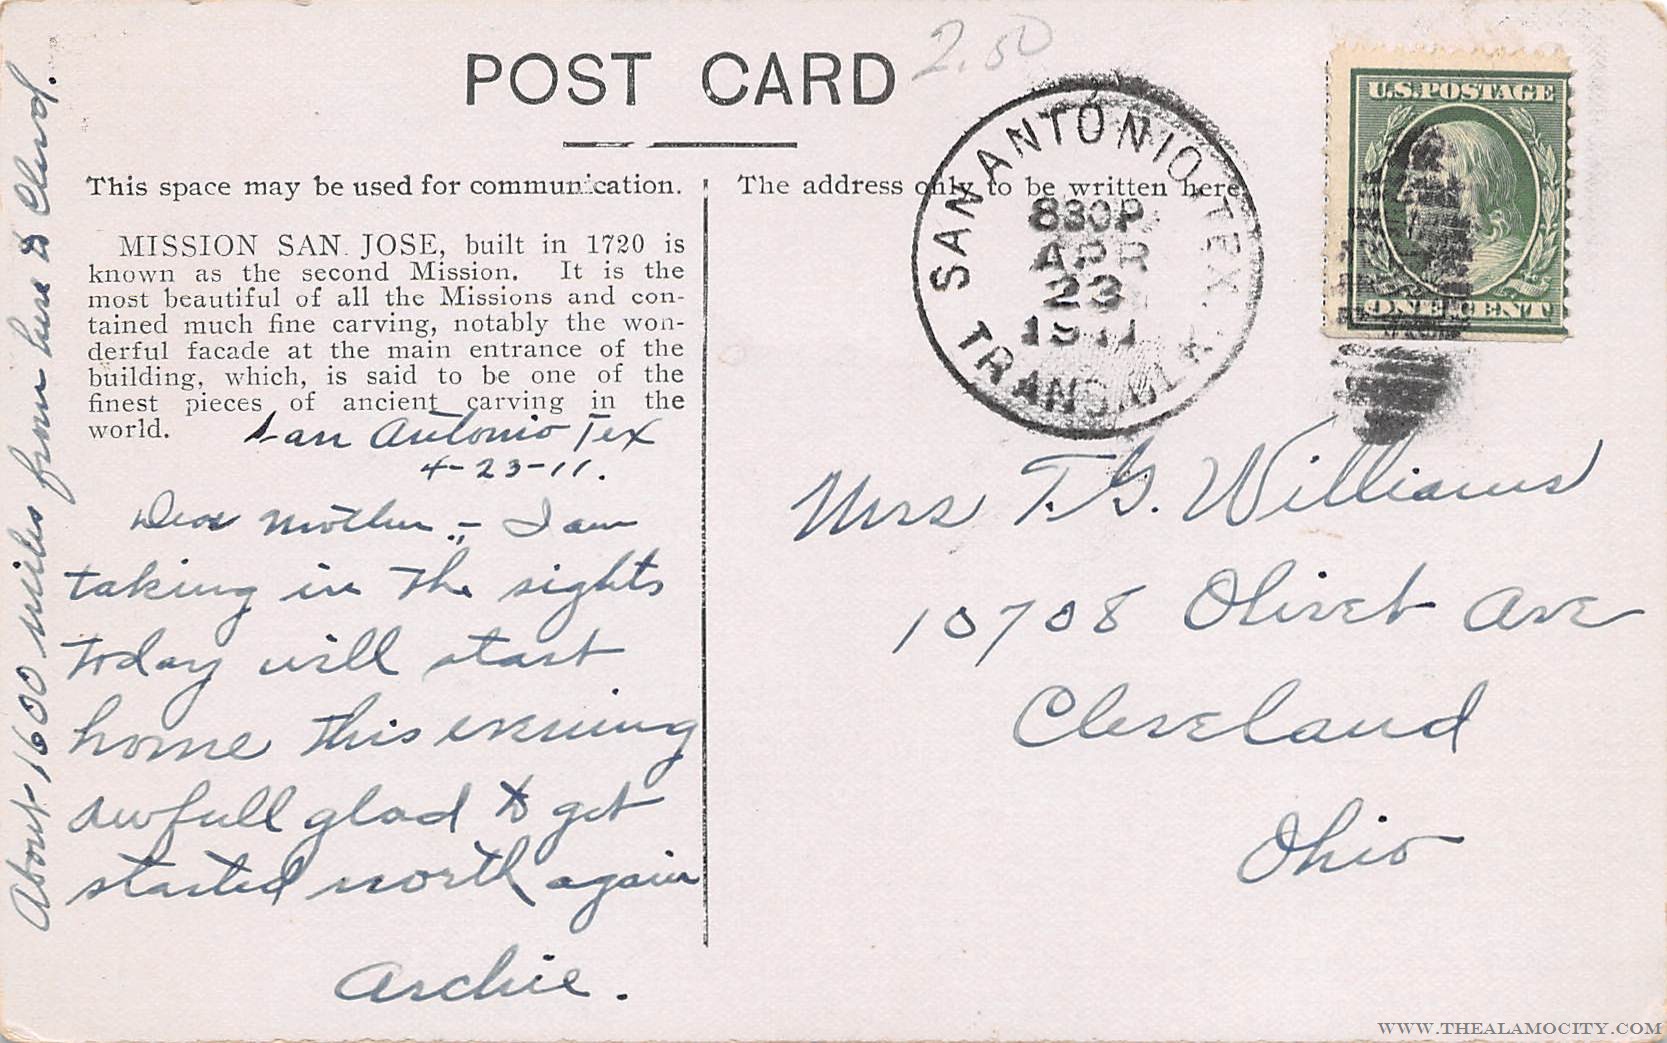 POST CARD
2.50
This space may be used for communication.
The address only to be written here
MISSION SAN JOSE, built in 1720 is
known as the second Mission. It is the
most beautiful of all the Missions and con-
tained much fine carving, notably the won-
derful facade at the main entrance of the
building, which, is said to be one of the
finest pieces of ancient carving in the
world.
San Antonio Tex
4-23-11.
Dear Mother.,- I am
taking in the sights
today will start
home this evening
awfull glad to get
started north again
Archie.
About 1600 miles from here to Clevd.
SAN ANTONIO, TEX.
830P
APR
23
1911
TRANSMIT
U.S. POSTAGE
ONE CENT
Mrs T.G. Williams
10708 Olivet Ave
Cleveland
Ohio
WWW.THEALAMOCITY.COM